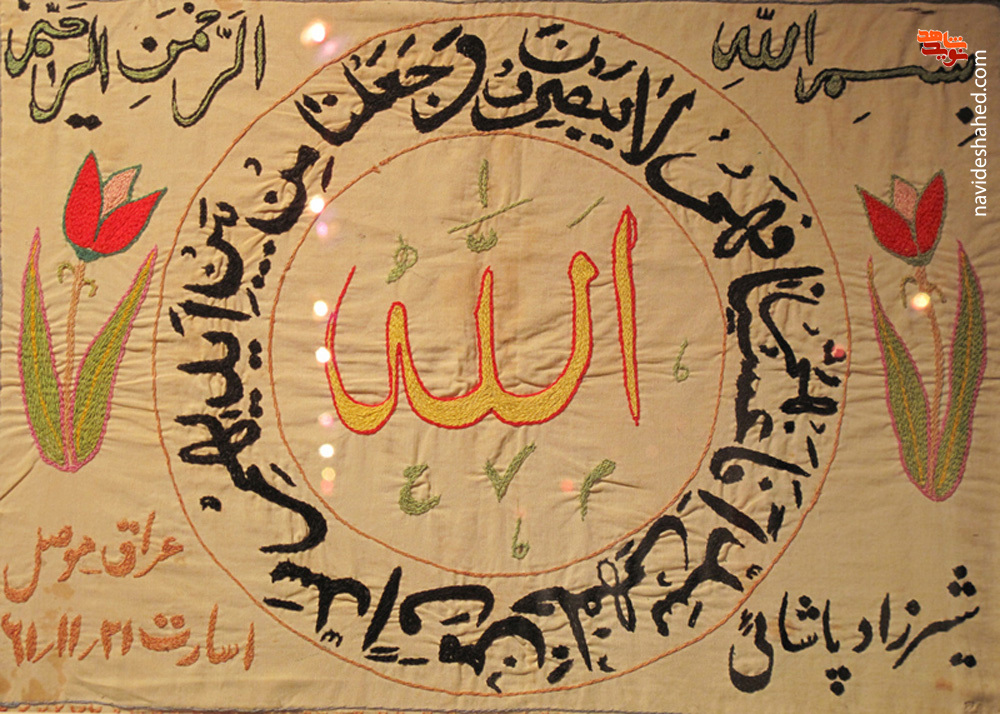 بسم الله
الرحمن الرحیم
وجعلنا من بین ایدیهم سدا ومن خلفهم سدا فاغشیناهم فهم لا یبصرون
الله
۴ ۷ ۲
شیرزاد پاشائی
عراق موصل
اسارت ۶۱/۱۱/۲۱
نوید شاهد
navideshahed.com